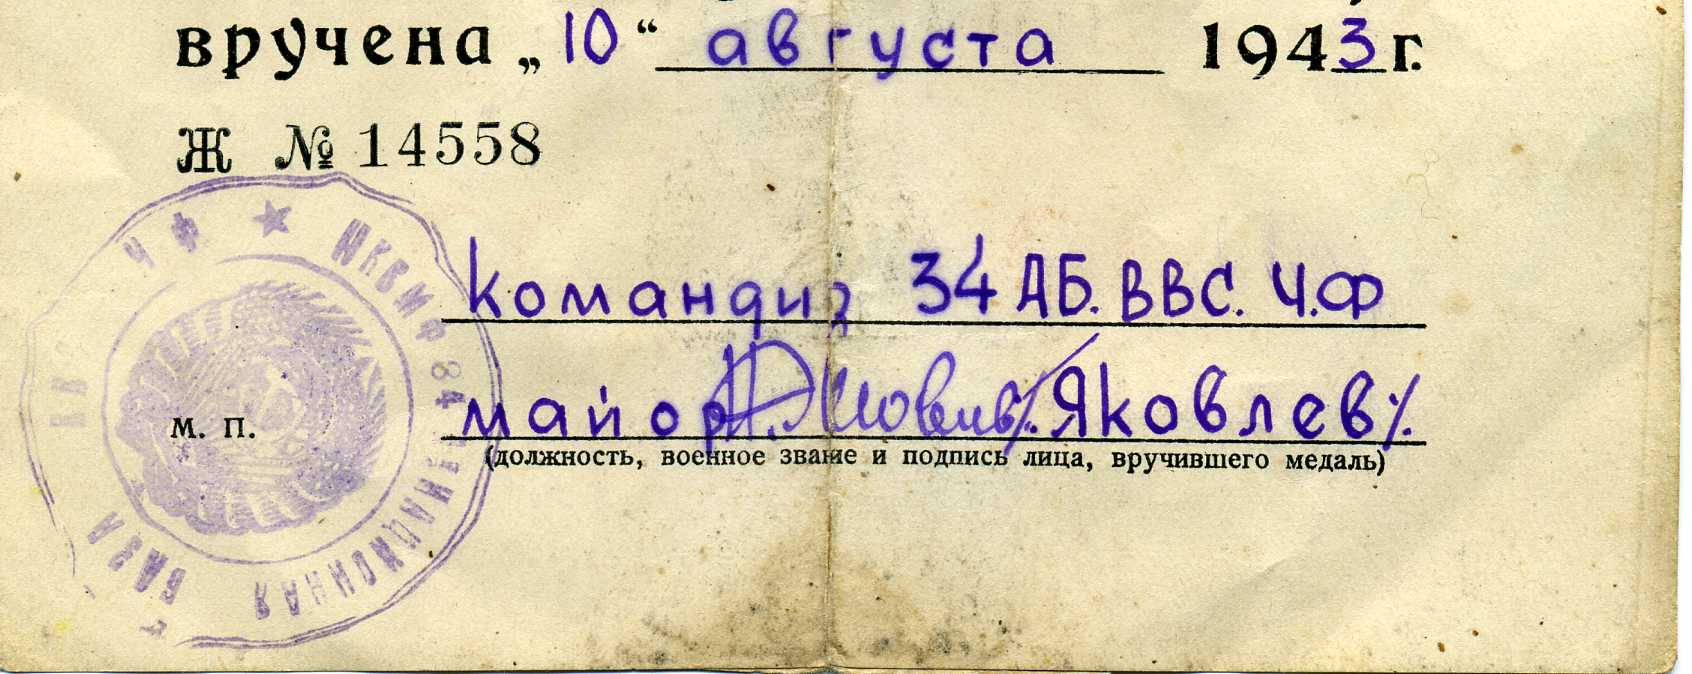 вручена „10“ августа 1943 г.
Ж № 14558
командир 34 АБ. ВВС. Ч.Ф
майор /Яковлев/.
м. п.
(должность, военное звание и подпись лица, вручившего медаль)
ЧФ ★
БАЗА